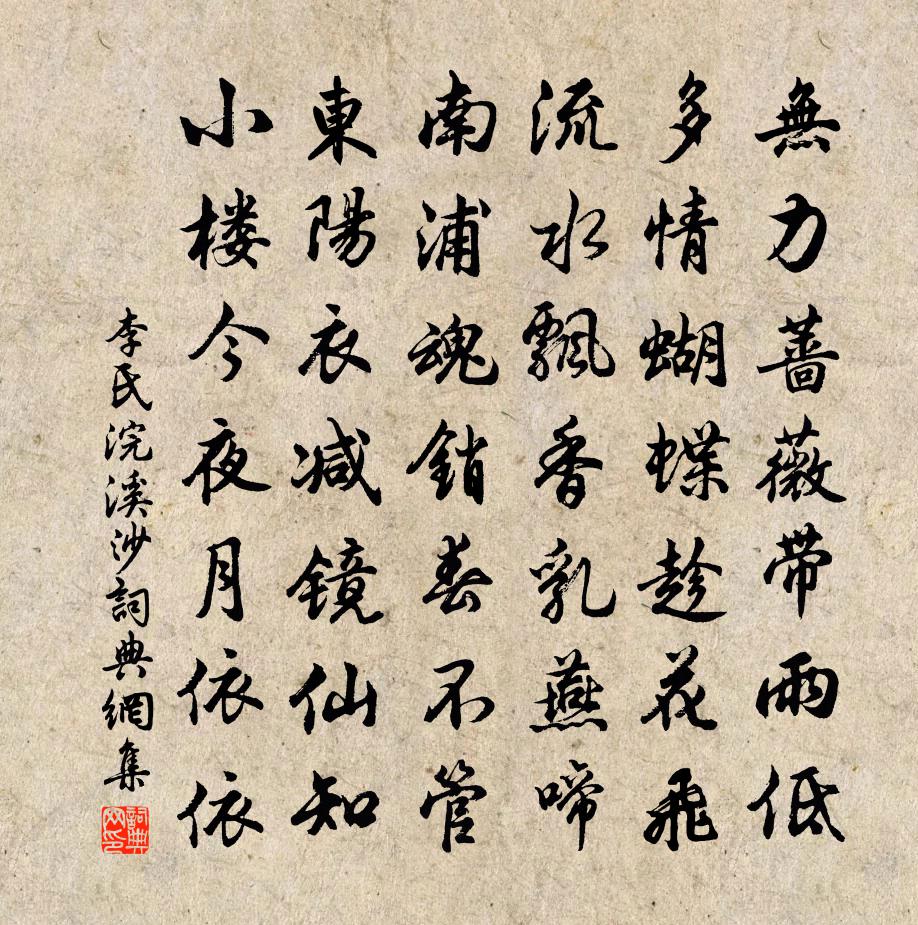 無力薔薇带雨低
多情蝴蝶趁花飛
流水飄香乳燕啼
南浦魂銷春不管
東陽衣减鏡仙知
小楼今夜月依依
李氏浣溪沙詞典網集
詞典网印